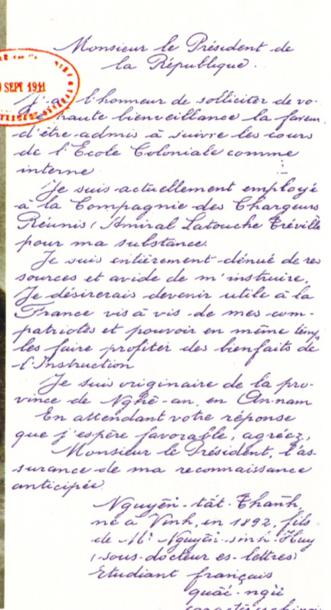 Monsieur le Président de
la République
SEPT 1911
l'honneur de solliciter de vo-
haute bienveillance la faveur
d'être admis à suivre les cours
de l'École Coloniale comme
interne
Je suis actuellement employé
à la Compagnie des Chargeurs
Réunis (Amiral Latouche Tréville
pour ma substance
Je suis entièrement dénué de res
sources et avide de m'instruire.
Je désirerais devenir utile à la
France vis à vis de mes com-
patriotes et pouvoir en même temps
les faire profiter des bienfaits de
l'Instruction
Je suis originaire de la pro-
vince de Nghê-an, en Annam
En attendant votre réponse
que j'espère favorable, agréez,
Monsieur le Président, l'as-
surance de ma reconnaissance
anticipée
Nguyễn-tât-Thành
né à Vinh, en 1892, fils
de Mr Nguyên-sinh-Huy
(sous-docteur ès-lettres)
Etudiant français
quôc-ngữ